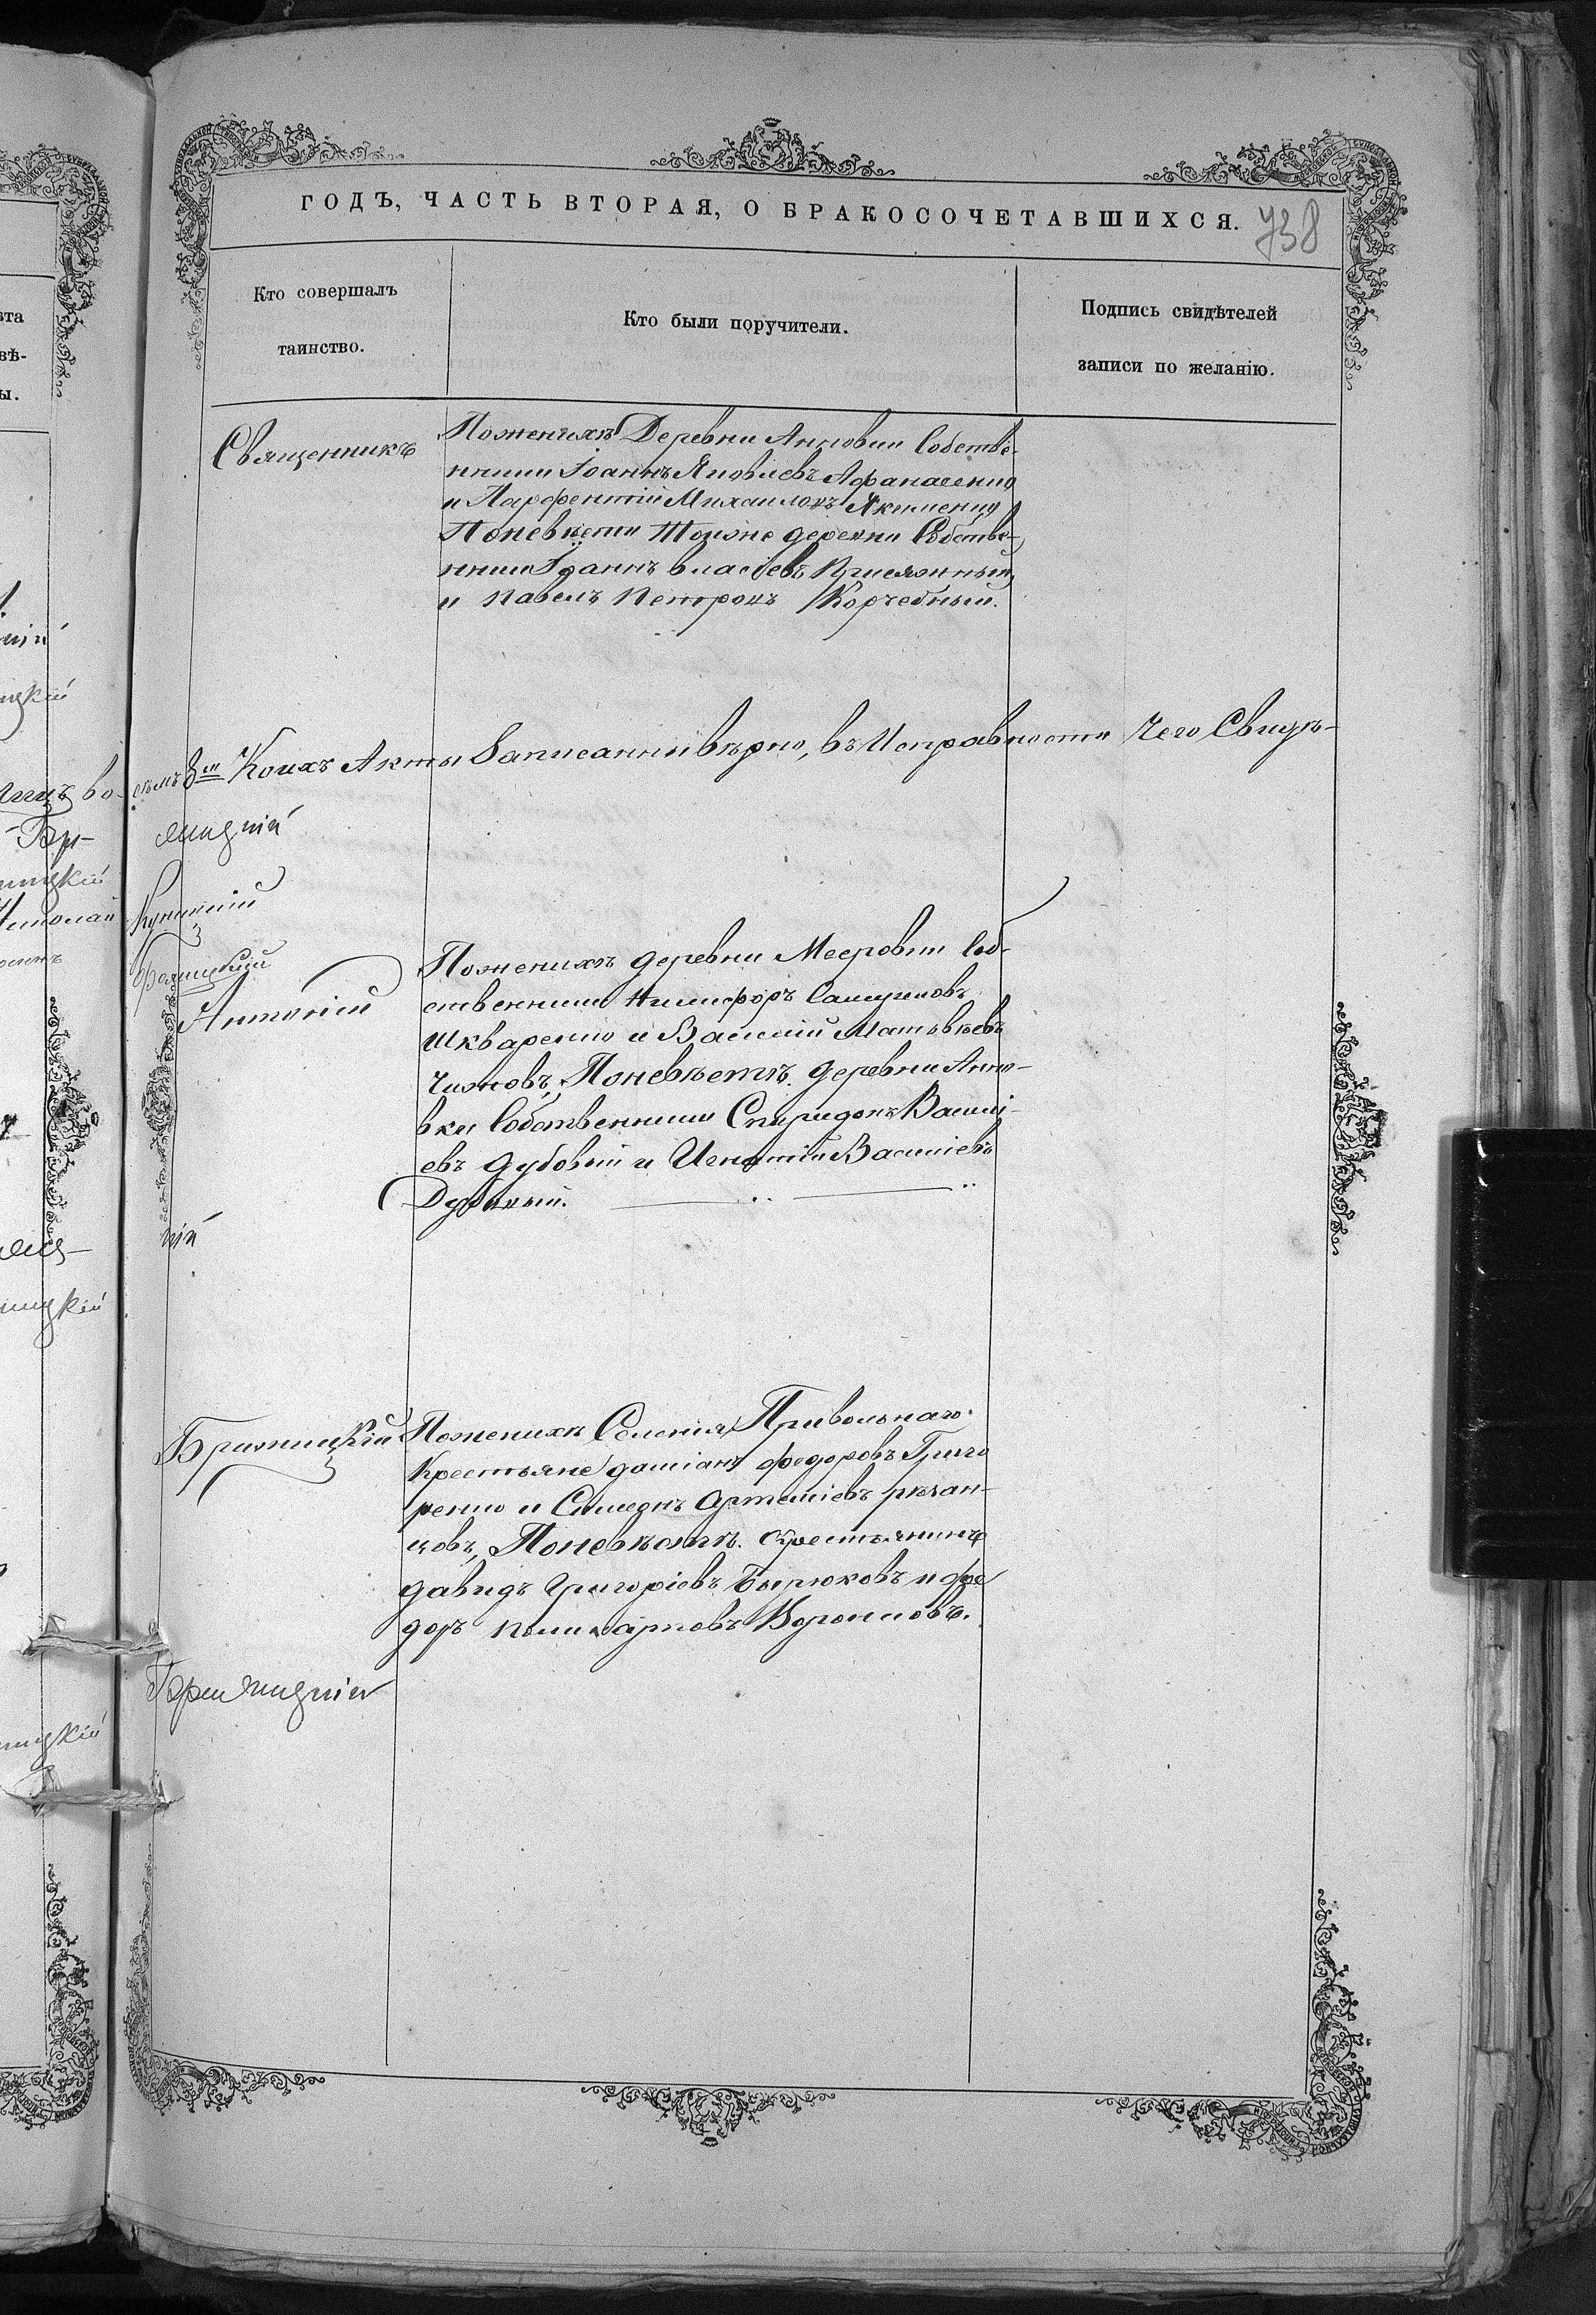 ГОДЪ, ЧАСТЬ ВТОРАЯ, О БРАКОСОЧЕТАВШИХСЯ.
738
Кто совершалъ
таинство.
Кто были поручители.
Подпись свидѣтелей
записи по желанію.
Священникъ
Поженихѣ Деревни Анновки Собстве-
нники Іоаннъ Яковлевъ Афанасенко
и Парфентій Михаиловъ Якименко
Поневѣсти Тойже деревни Собстве-
нники Іоаннъ власіевъ Присяжный,
и павелъ петровъ Корчебный.
8и Коихъ Акты Записанны вѣрно, въ Исправности Чего Свидѣ-
Купицкій
Антоній
Поженихѣ деревни Мееровки Соб-
ственники Никифоръ
Шкваренко и Василій Матвѣевъ
Чижовъ, Поневѣстѣ деревни Анно-
вки Собственники Спиридонъ Васил-
евъ дубовый и Игнатій Василіевъ
Дубовый.
ній
Бржницкій
Поженихѣ Селенія Привольнаго
Крестьяне даміанъ федоровъ Григо
ренко и Симеонъ Артеміевъ рязан-
цовъ, Поневѣстѣ крестьянинъ
давидъ Григоріевъ Бирюковъ и фео
доръ поликарповъ Вороновъ.